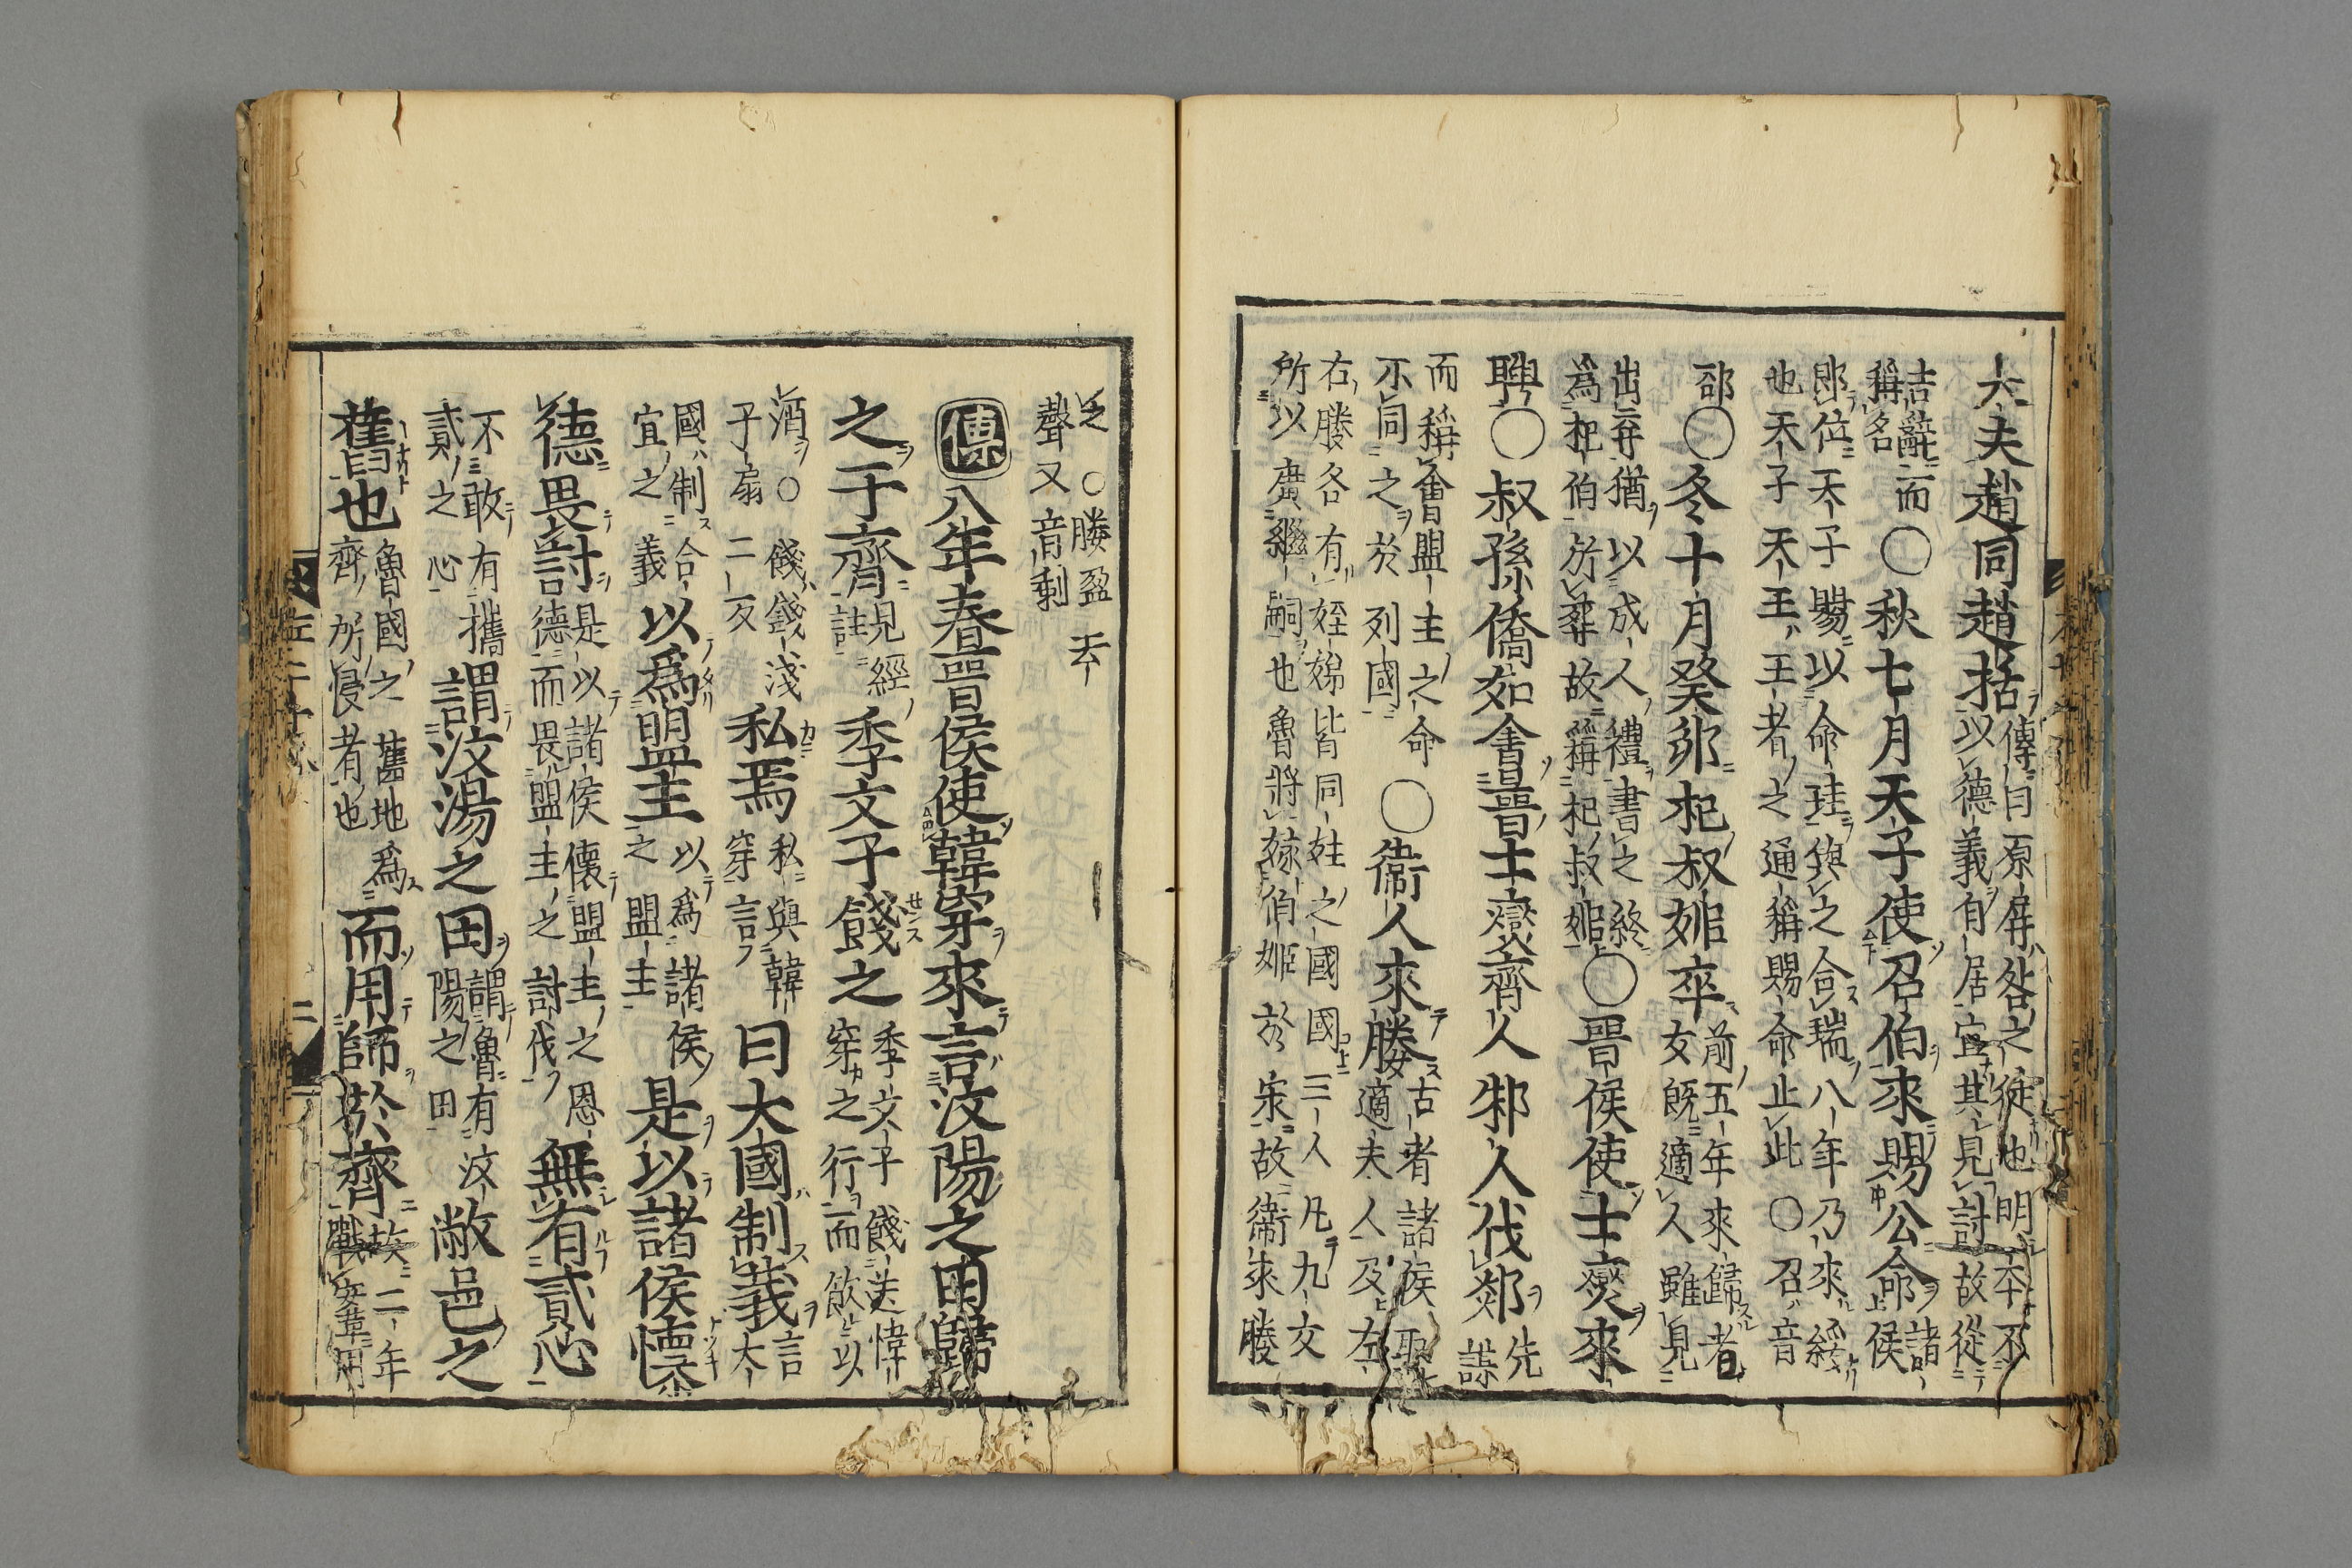 大夫趙同趙括傳曰原屏咎之徒也明本不以德義自居宜其見討故從
告辭而稱名〇秋七月天子使召伯來賜公命諸侯
即位天子賜以命珪與之合瑞八年乃來緩也天子天王王者之通稱賜命止此〇召音
邵〇冬十月癸卯杞叔姬卒前五年來歸者女既適人雖見
出弃猶以成人禮書之終為杞伯所葬故稱杞叔姬〇晉侯使士燮來
聘〇叔孫僑如會晉士燮齊人邾人伐郯先謀
而稱會盟主之命不同之於列國〇衛人來媵古者諸侯取適夫人及左
右媵各有姪娣皆同姓之國國三人凡九女所以廣繼嗣也魯將嫁伯姬於宋故衛來媵
之〇媵盈去聲又音剩
傳八年春晉侯使韓穿來言汶陽之田歸
之于齊見經註季文子餞之季文子餞送韓穿之行而飲以
酒〇餞錢淺子扇二反私焉私與韓穿言曰大國制義言大
國制合宜之義以為盟主以為諸侯之盟主是以諸侯懷
德畏討是以諸侯懷盟主之恩德而畏盟主之討伐無有貳心
不敢有攜貳之心謂汶陽之田謂魯有汶陽之田敝邑之
舊也魯國之舊地為齊所侵者也而用師於齊故二年戰鞌用